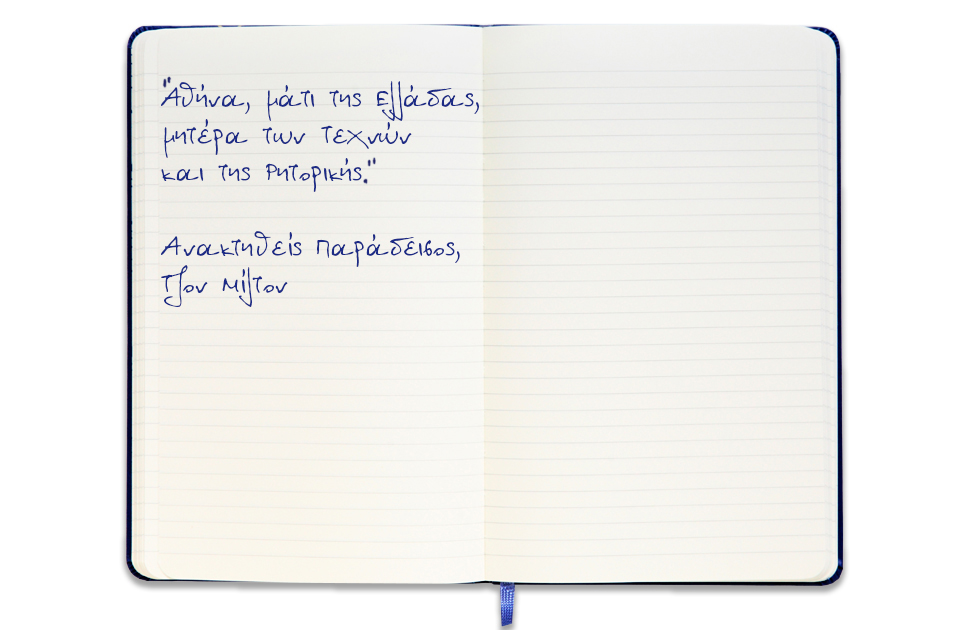 "Αθήνα, μάτι της Ελλάδας,
μητέρα των τεχνών
και της Ρητορικής."
Ανακτηθείς Παράδεισος,
Τζον Μίλτον